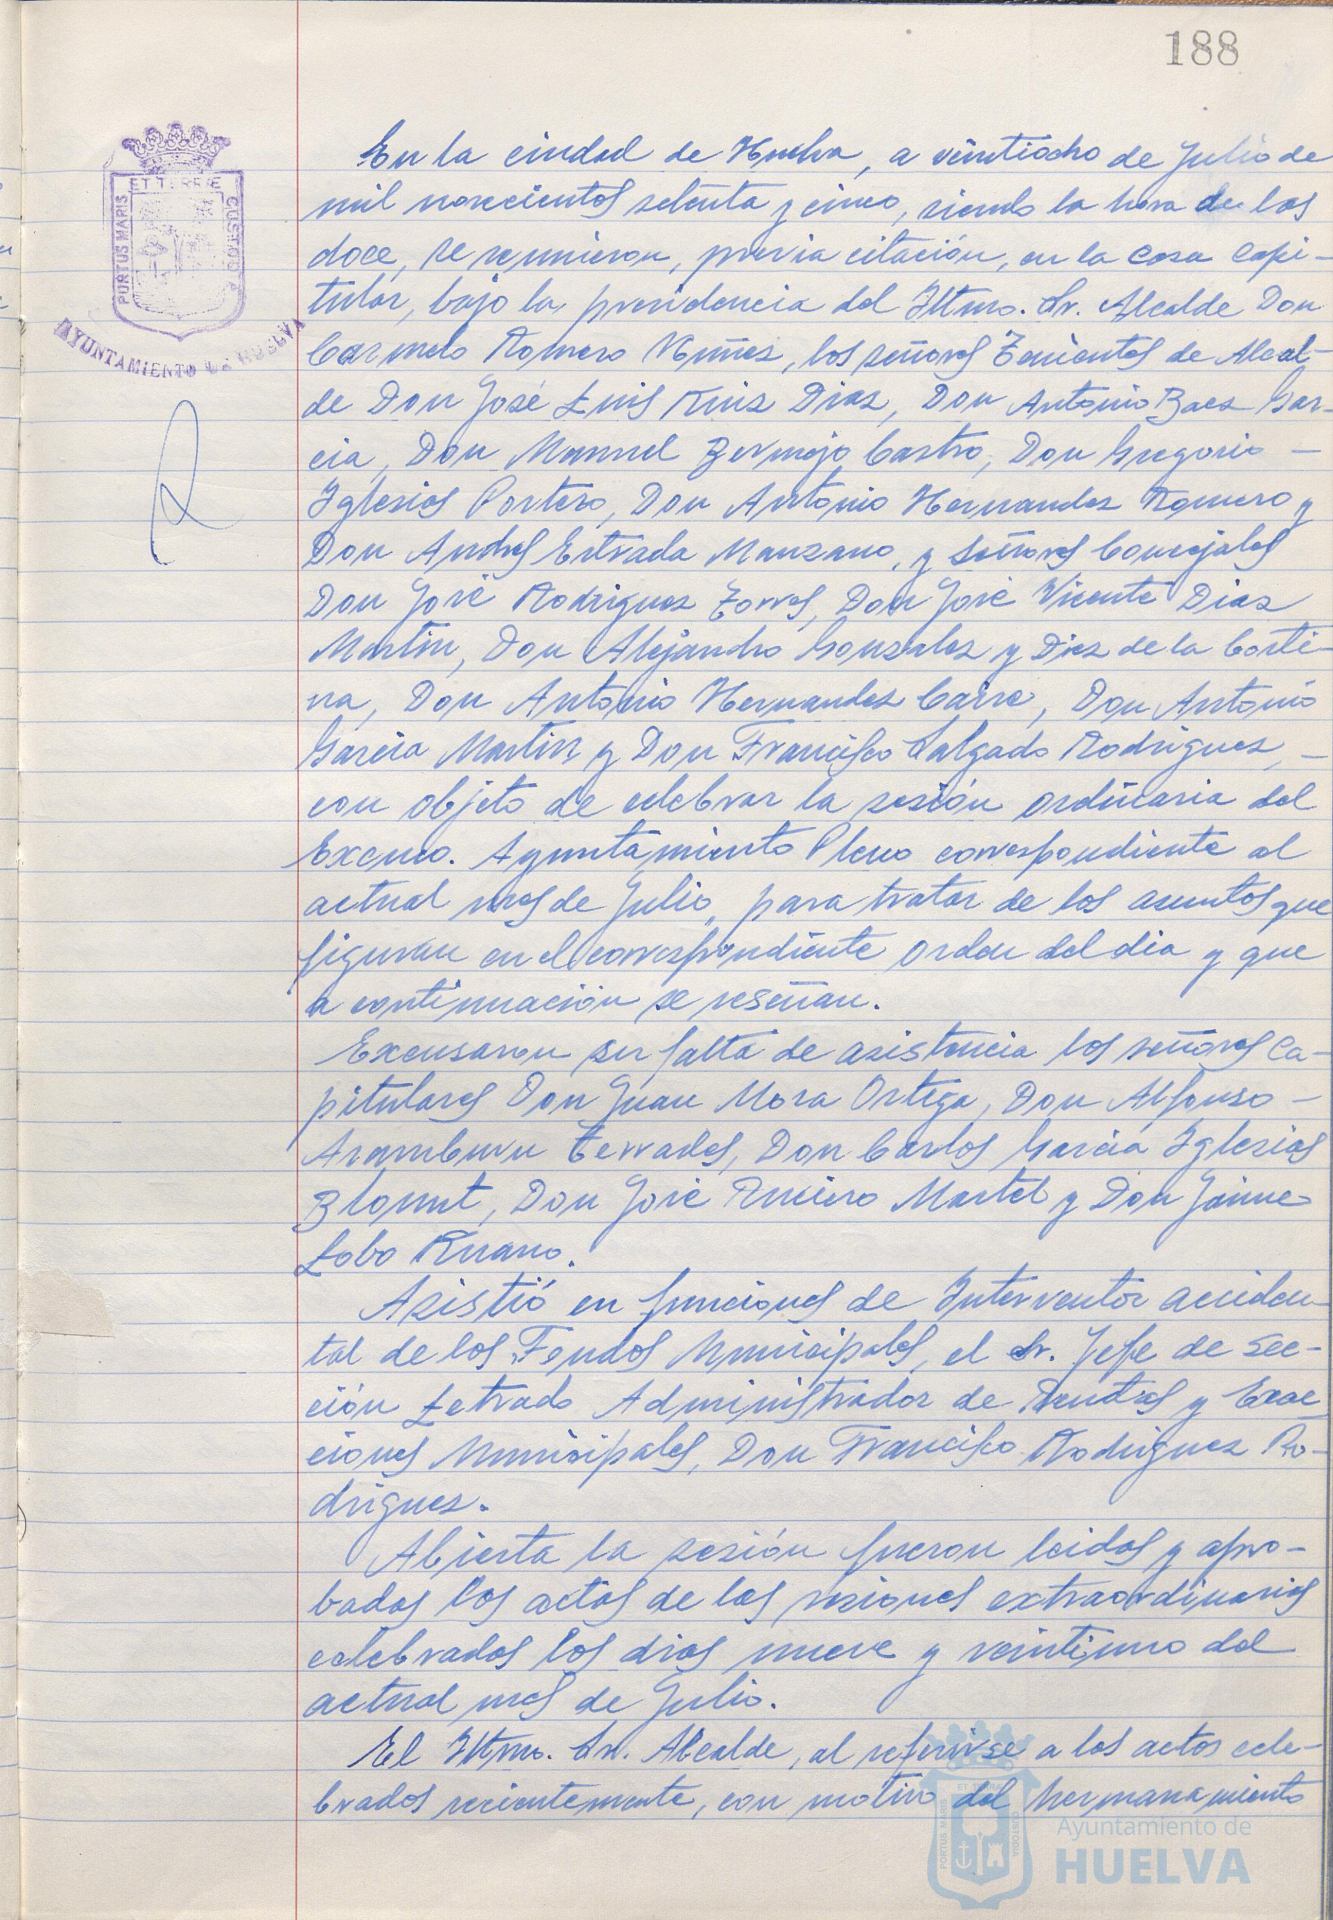 188
ET TERRÆ
PORTUS MARIS
CUSTODIA
AYUNTAMIENTO DE HUELVA
En la ciudad de Huelva, a veintiocho de Julio de
mil novecientos setenta y cinco, siendo la hora de las
doce, se reunieron, previa citación, en la Casa Capi-
tular, bajo la presidencia del Iltmo. Sr. Alcalde Don
Carmelo Romero Nuñez, los señores Tenientes de Alcal-
de Don José Luis Ruiz Diaz, Don Antonio Baez Gar-
cia, Don Manuel Bermejo Castro, Don Gregorio -
Iglesias Portero, Don Antonio Hernandez Romero y
Don Andres Estrada Manzano, y señores Concejales
Don José Rodriguez Torres, Don José Vicente Diaz
Martin, Don Alejandro Gonzalez y Diez de la Corti-
na, Don Antonio Hernandez Cairo, Don Antonio
Garcia Martin y Don Francisco Salgado Rodriguez, -
con objeto de celebrar la sesión ordinaria del
Excmo. Ayuntamiento Pleno correspondiente al
actual mes de Julio, para tratar de los asuntos que
figuran en el correspondiente Orden del dia y que
a continuación se reseñan.
Excusaron su falta de asistencia los señores Ca-
pitulares Don Juan Mora Ortega, Don Alfonso -
Aramburu Terrades, Don Carlos Garcia Iglesias
Blount, Don José Ruciero Martel y Don Jaime
Lobo Ruano.
Asistió en funciones de Interventor acciden-
tal de los Fondos Municipales, el Sr. Jefe de Sec-
ción Letrado Administrador de Rentas y Exac
ciones Municipales, Don Francisco Rodriguez Ro-
driguez.
Abierta la sesión fueron leidas y apro-
badas las actas de las sesiones extraordinarias
celebradas los dias nueve y veintiuno del
actual mes de Julio.
El Iltmo. Sr. Alcalde, al referirse a los actos cele-
brados recientemente, con motivo del hermanamiento
ET TERRÆ
PORTUS MARIS
CUSTODIA
Ayuntamiento de
HUELVA